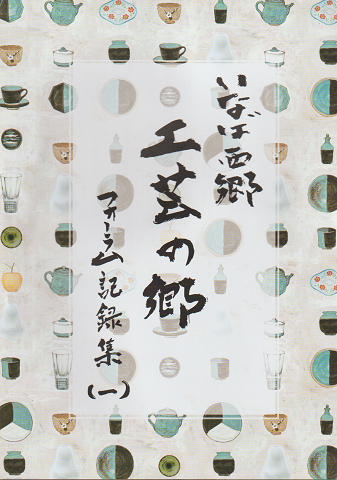 いなば西郷
工芸の郷
フォーラム記録集(一)